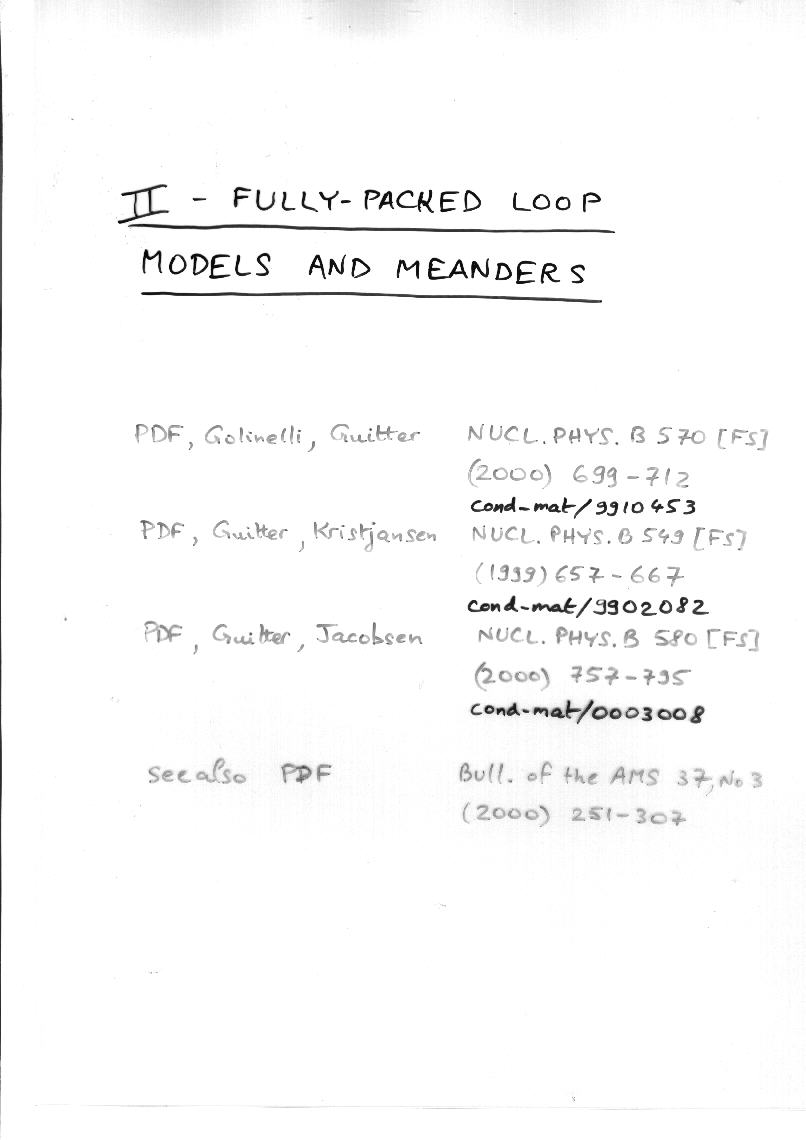 II - FULLY-PACKED LOOP
MODELS AND MEANDERS
PDF, Golinelli, Guitter NUCL. PHYS. B 570 [FS]
(2000) 699-712
cond-mat/9910453
PDF, Guitter, Kristjansen NUCL. PHYS. B 549 [FS]
(1999) 657-667
cond-mat/9902082
PDF, Guitter, Jacobsen NUCL. PHYS. B 580 [FS]
(2000) 757-795
cond-mat/0003008
see also PDF Bull. of the AMS 37, No 3
(2000) 251-307